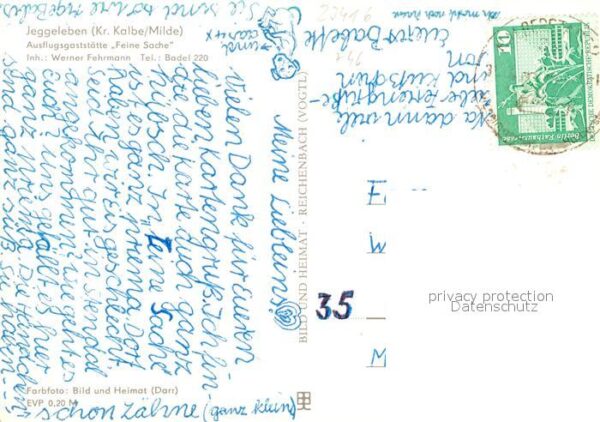 Jeggeleben (Kr. Kalbe/Milde)
Ausflugsgaststätte „Feine Sache"
Inh.: Werner Fehrmann Tel.: Badel 220
Meine Liebleins
Vielen Dank für eueren
lieben Kartengruß. Ich fin
de die Karte auch ganz
hübsch. In "Feine Sache"
ist es ganz prima. Dort
haben wir Eis geschleckt.
Seid Ihr gut in Stendal
angekommen? Wie geht es
euch? Uns gefällt es hier
ganz
sind ganz süß. Sie haben
schon Zähne (ganz klein)
Sie sind
und
Na dann viele
liebe Feriengrüße
und Küßchen
von
eurer Babette
BILD UND HEIMAT · REICHENBACH (VOGTL)
10
Berlin
F
W
35
M
privacy protection
Datenschutz
Farbfoto: Bild und Heimat (Darr)
EVP 0,20 M